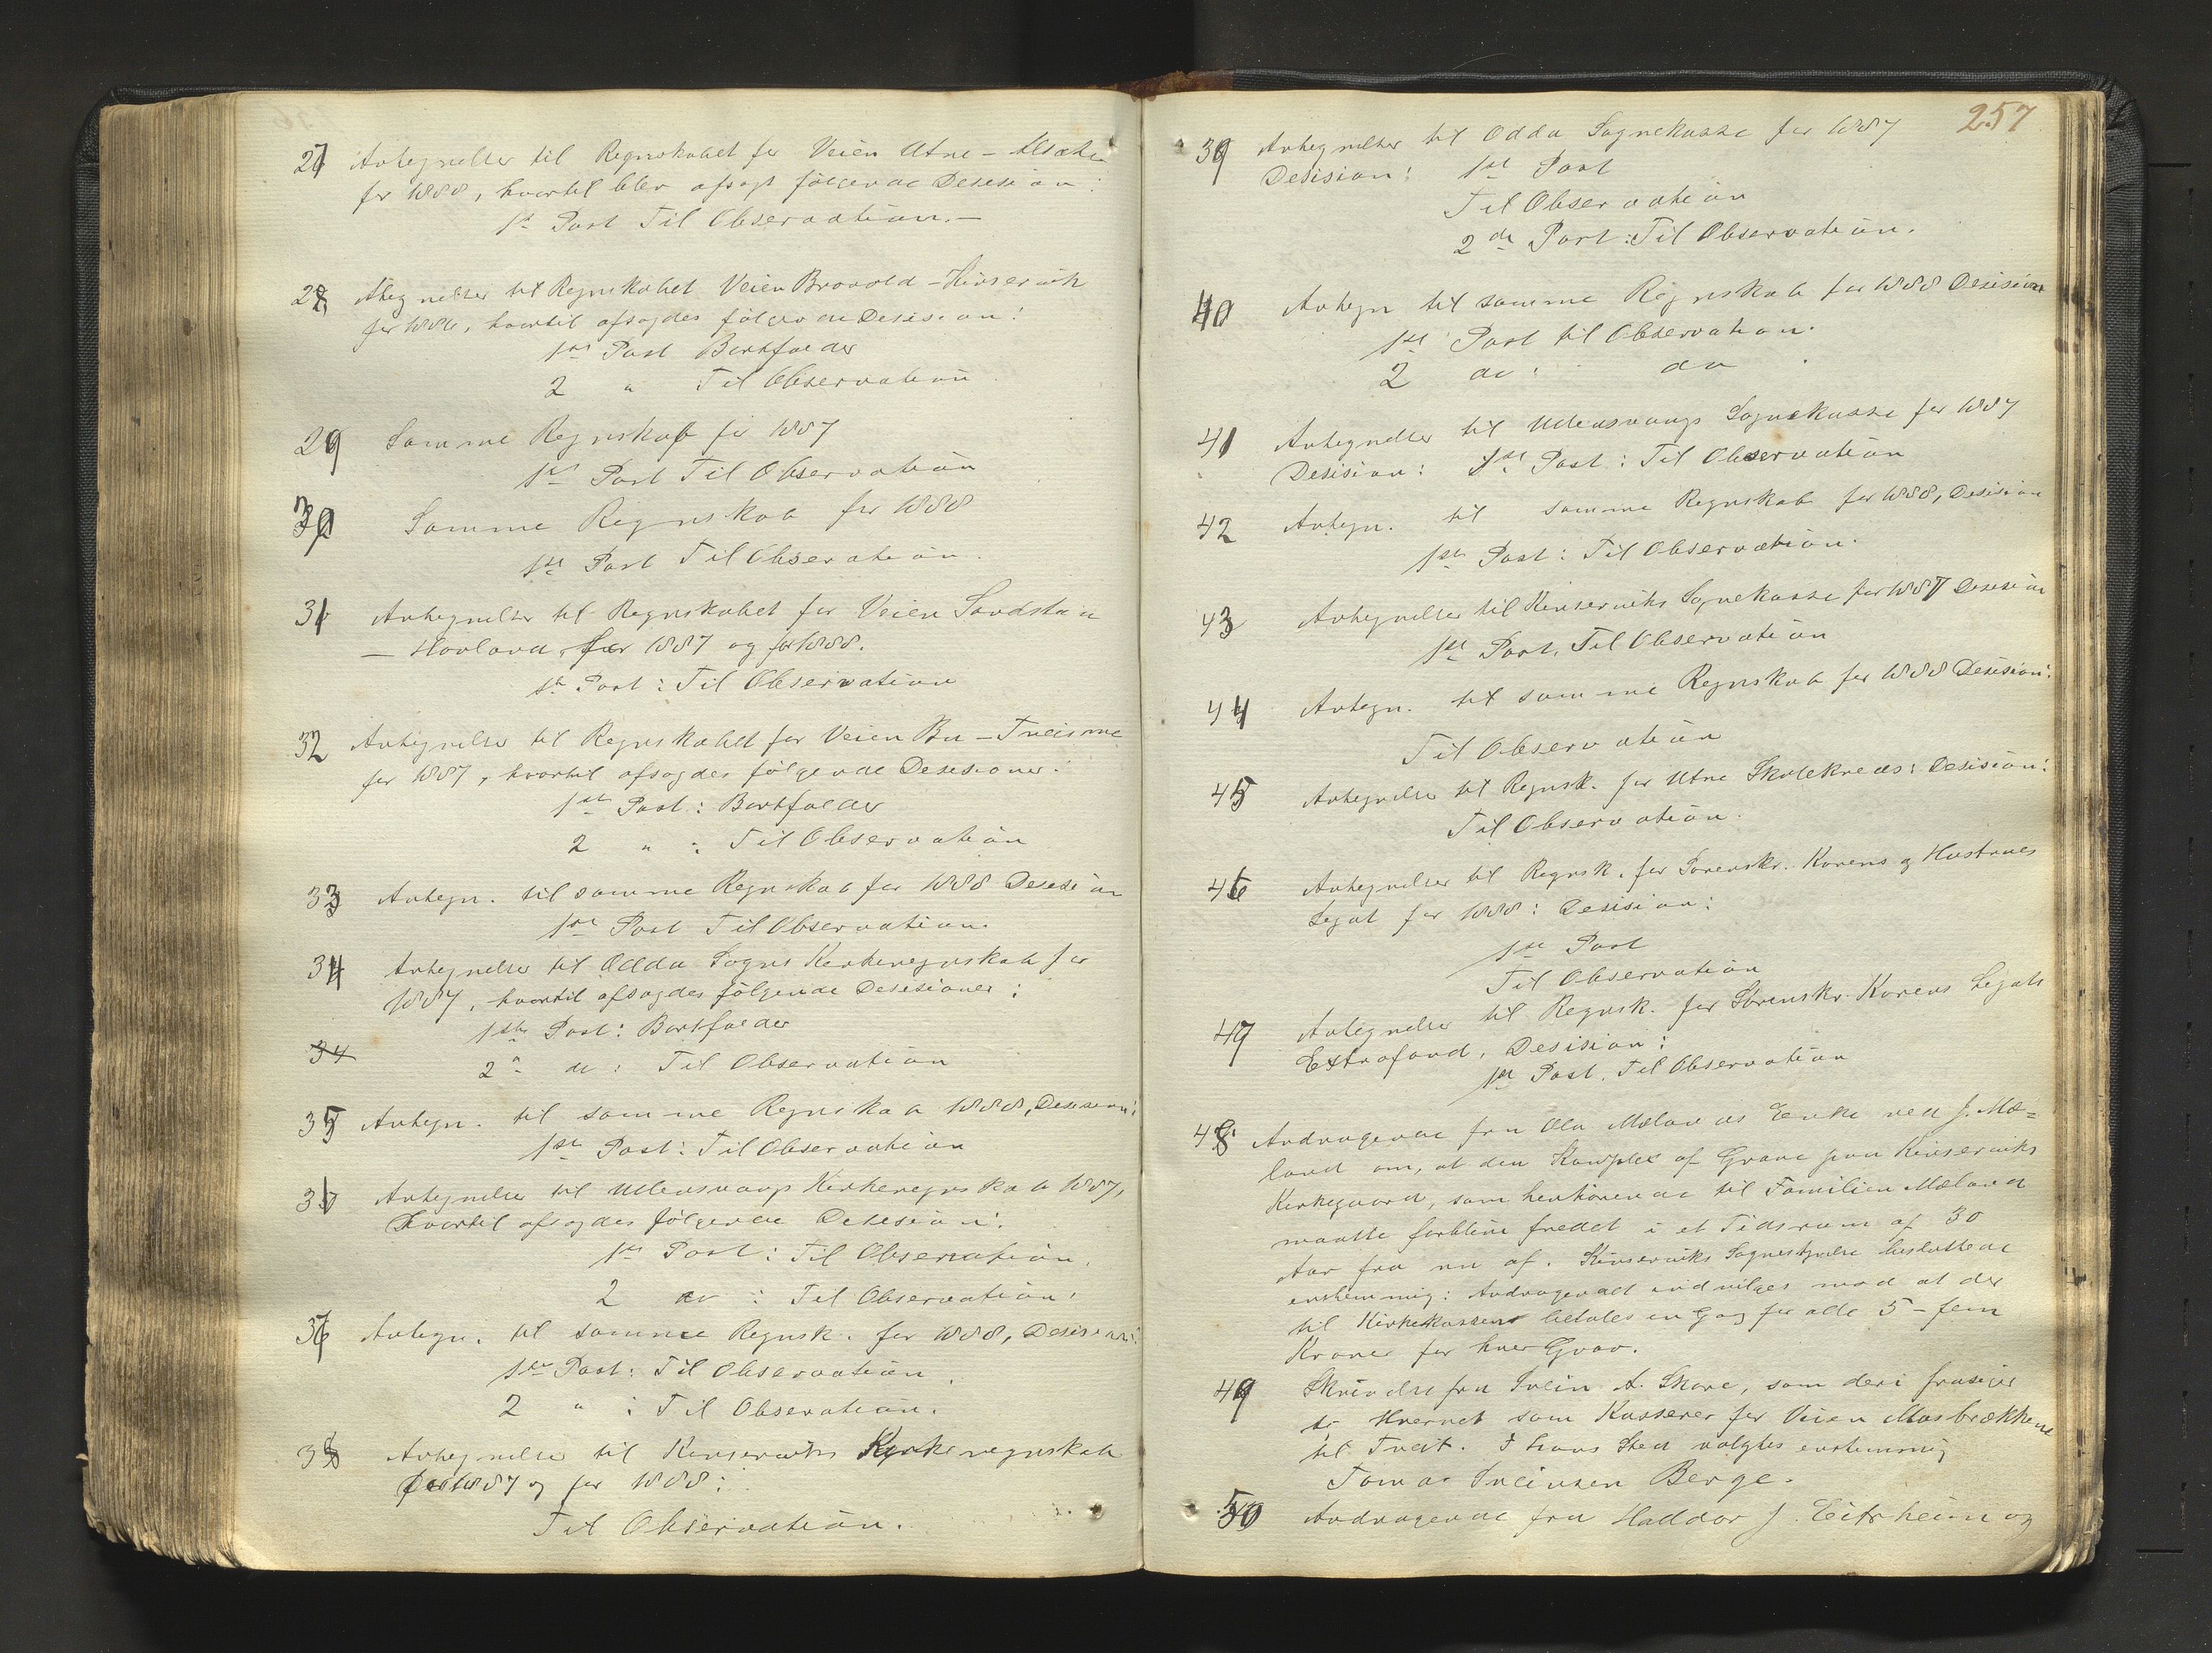 27 Antegnelser til Regnskabet for Veien Utne - Alsaker
for 1888, hvortil blev afsagt følgende Desision:
1st Post Til Observation. -
28 Ategnelser til Regnskabet Veien Brovold - Kinservik
for 1886, hvortil afsagdes følgende Desision:
1ste Post Bortfalder
2 " Til Observation
29 Samme Regnskab for 1887
1ste Post Til Observation
30 Samme Regnskab for 1888
1ste Post Til Observation.
31 Antegnelser til Regnskabet for Veien Sandsten
- Hovland, for 1887 og for 1888.
1ste Post: Til Observation
32 Antegnelser til Regnskabet for Veien Bu - Tveisme
for 1887, hvortil afsagdes følgende Desisioner:
1ste Post: Bortfalder
2 " : Til Observation
33 Antegn. til samme Regnskab for 1888 Desision
1ste Post Til Observation.
34 Antegnelser til Odda Sogns Kirkeregnskab for
1887, hvortil afsagdes følgende Desisioner:
1ste Post: Bortfalder
34
2 do : Til Observation
35 Antegn. til samme Regnskab 1888, Desision:
1ste Post: Til Observation
36 Antegnelser til Ullensvangs Kirkeregnskab 1887,
hvortil afsagdes følgende Desision:
1ste Post: Til Observation.
2 do : Til Observation.
37 Antegn. til samme Regnsk. for 1888, Desision:
1ste Post: Til Observation.
2 " : Til Observation.
38 Antegnelser til Kinserviks Kirkeregnskab
for 1887 og for 1888:
Til Observation.
257
39 Antegnelser til Odda Sognekasse for 1887
Desision: 1ste Post
Til Observation
2de Post: Til Observation.
40 Antegn til samme Regnskab for 1888 Desision
1ste Post til Observation.
2 do : do
41 Antegnelser til Ullensvangs Sognekasse for 1887
Desision: 1ste Post: Til Observation
42 Antegn. til samme Regnskab for 1888, Desision
1ste Post: Til Observation.
43 Antegnelser til Kinserviks Sognekasse for 1887 Desision
1ste Post. Til Observation
44 Antegn. til samme Regnskab for 1888 Desision:
Til Observation
45 Antegnelser til Regnsk. for Utne Skolekreds: Desision:
Til Observation.
46 Antegnelser til Regnsk. for Sorenskr. Korens og Hustrues
Legat for 1888: Desision:
1ste Post
Til Observation
47 Antegnelser til Regnsk. for Sorenskr. Korens Legats
Extrafond, Desision:
1ste Post. Til Observation
48 Andragende fra Ola Mælands Enke ved J. Mæ=
land om, at den Komplex af Grave paa Kinserviks
Kirkegaard, som henhörende til Familien Mæland
maatte forblive fredet i et Tidsrum af 30
Aar fra nu af. Kinserviks Sognestyrelse besluttede
enstemmig: Andragendet indvilges mod at der
til Kirkekassen betales en Gang for alle 5 - fem
Kroner for hver Grav.
49 Skrivelse fra Svein A. Skare, som deri frasiger
sig Hvervet som Kasserer for Veien Mosbrækkene
til Tveit. I hans Sted valgtes enstemmig
Tomas Sveinsen Berge.
50 Andragende fra Haldor J. Eitrheim og